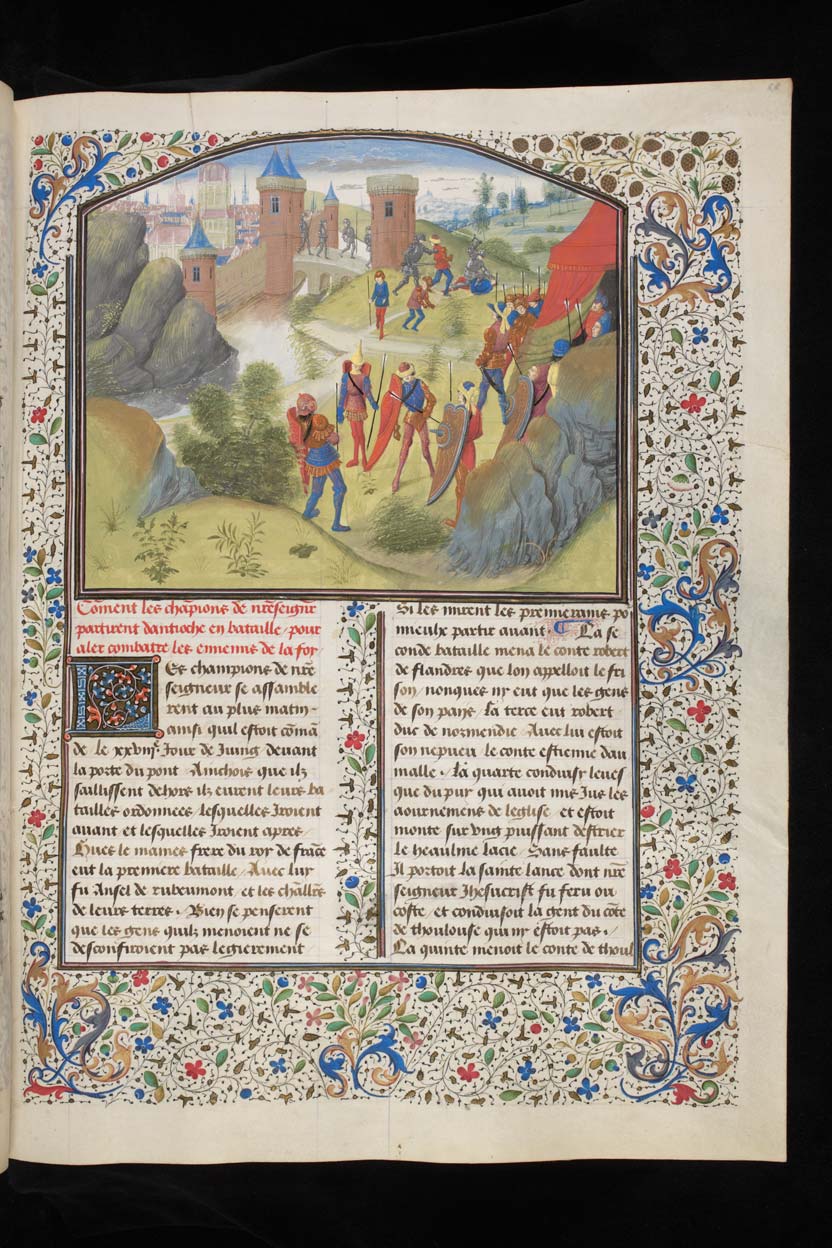 Coment les chāpions de nrēseignr
partirent dantioche en bataille / pour
aler combatre les ennemis de la foy
Les champions de nrē
seigneur se assamble
rent au plus matin /
ainsi quil estoit cōmā
de le xxviije Jour de Juing devant
la porte du pont Ainchois que ilz
saillissent dehors ilz eurent leurs ba
tailles ordonnees lesquelles Iroient
avant et lesquelles Iroient apres /
Hues le maines frere du roy de frāce
eut la premiere bataille / Avec luy
fu Ansel de rubeumont et les chl̄lrs
de leurs terres . Bien se penserent
que les gens quilz menoient ne se
desconfiroient pas legierement
Si les mirent les premierains po
mieulx partir avant La se
conde bataille mena le conte robert
de flandres que lon appelloit le fri
son / nonques ny eut que les gens
de son pays / La terce eut robert
duc de normendie / Avec luy estoit
son nepveu le conte estienne dau
malle / La quarte conduisy leves
que du puy qui avoit mis Jus les
aournemens de leglise / et estoit
monte sur vng puissant destrier
le heaulme lacie / Sans faulte
Il portoit la sainte lance dont nrē
seigneur Jhesucrist fu feru ou
coste / et conduisoit la gent du cōte
de thoulouse qui ny estoit pas /
La quinte menoit le conte de thoul